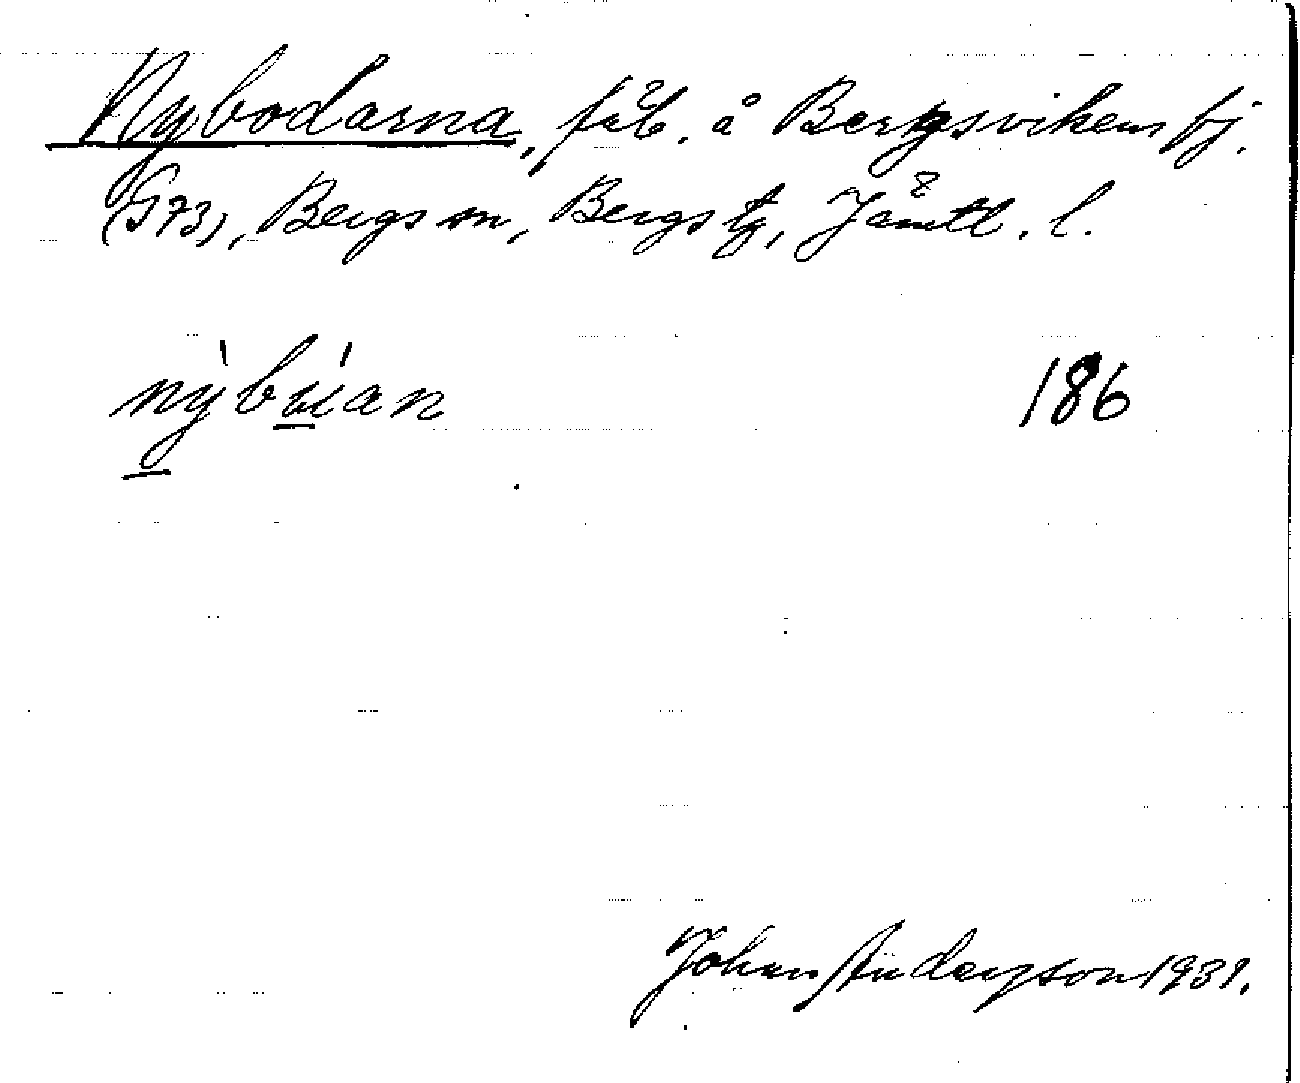 Nybodarna, fäb. å Bergsvikens bj.
(573), Bergs sn, Bergs tg, Jämtl. l.
nỳbúan 186
Johan Anderson 1931.